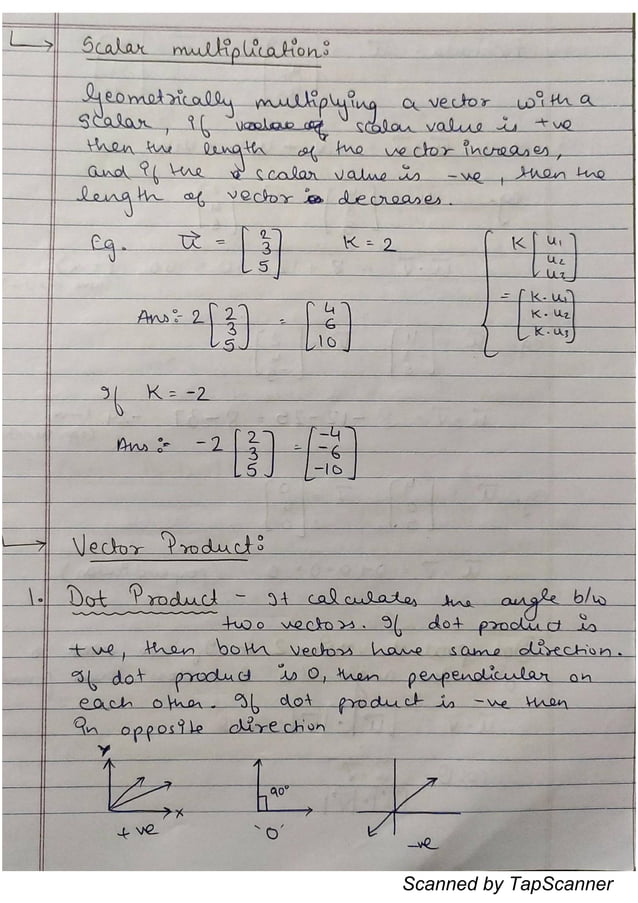 Scalar multiplication:
Geometrically multiplying a vector with a
scalar, if scalar value is +ve
then the length of the vector increases,
and if the scalar value is -ve, then the
length of vector decreases.
Eg. u⃗ = [2 3 5] K = 2 { K [u1 u2 u3]
= [K.u1 K.u2 K.u3]
Ans:- 2 [2 3 5] = [4 6 10]
If K = -2
Ans:- -2 [2 3 5] = [-4 -6 -10]
Vector Product:
1. Dot Product - It calculates the angle b/w
two vectors. If dot product is
+ve, then both vectors have same direction.
If dot product is 0, then perpendicular on
each other. If dot product is -ve then
in opposite direction
Y
90°
X
+ve '0' -ve
Scanned by TapScanner